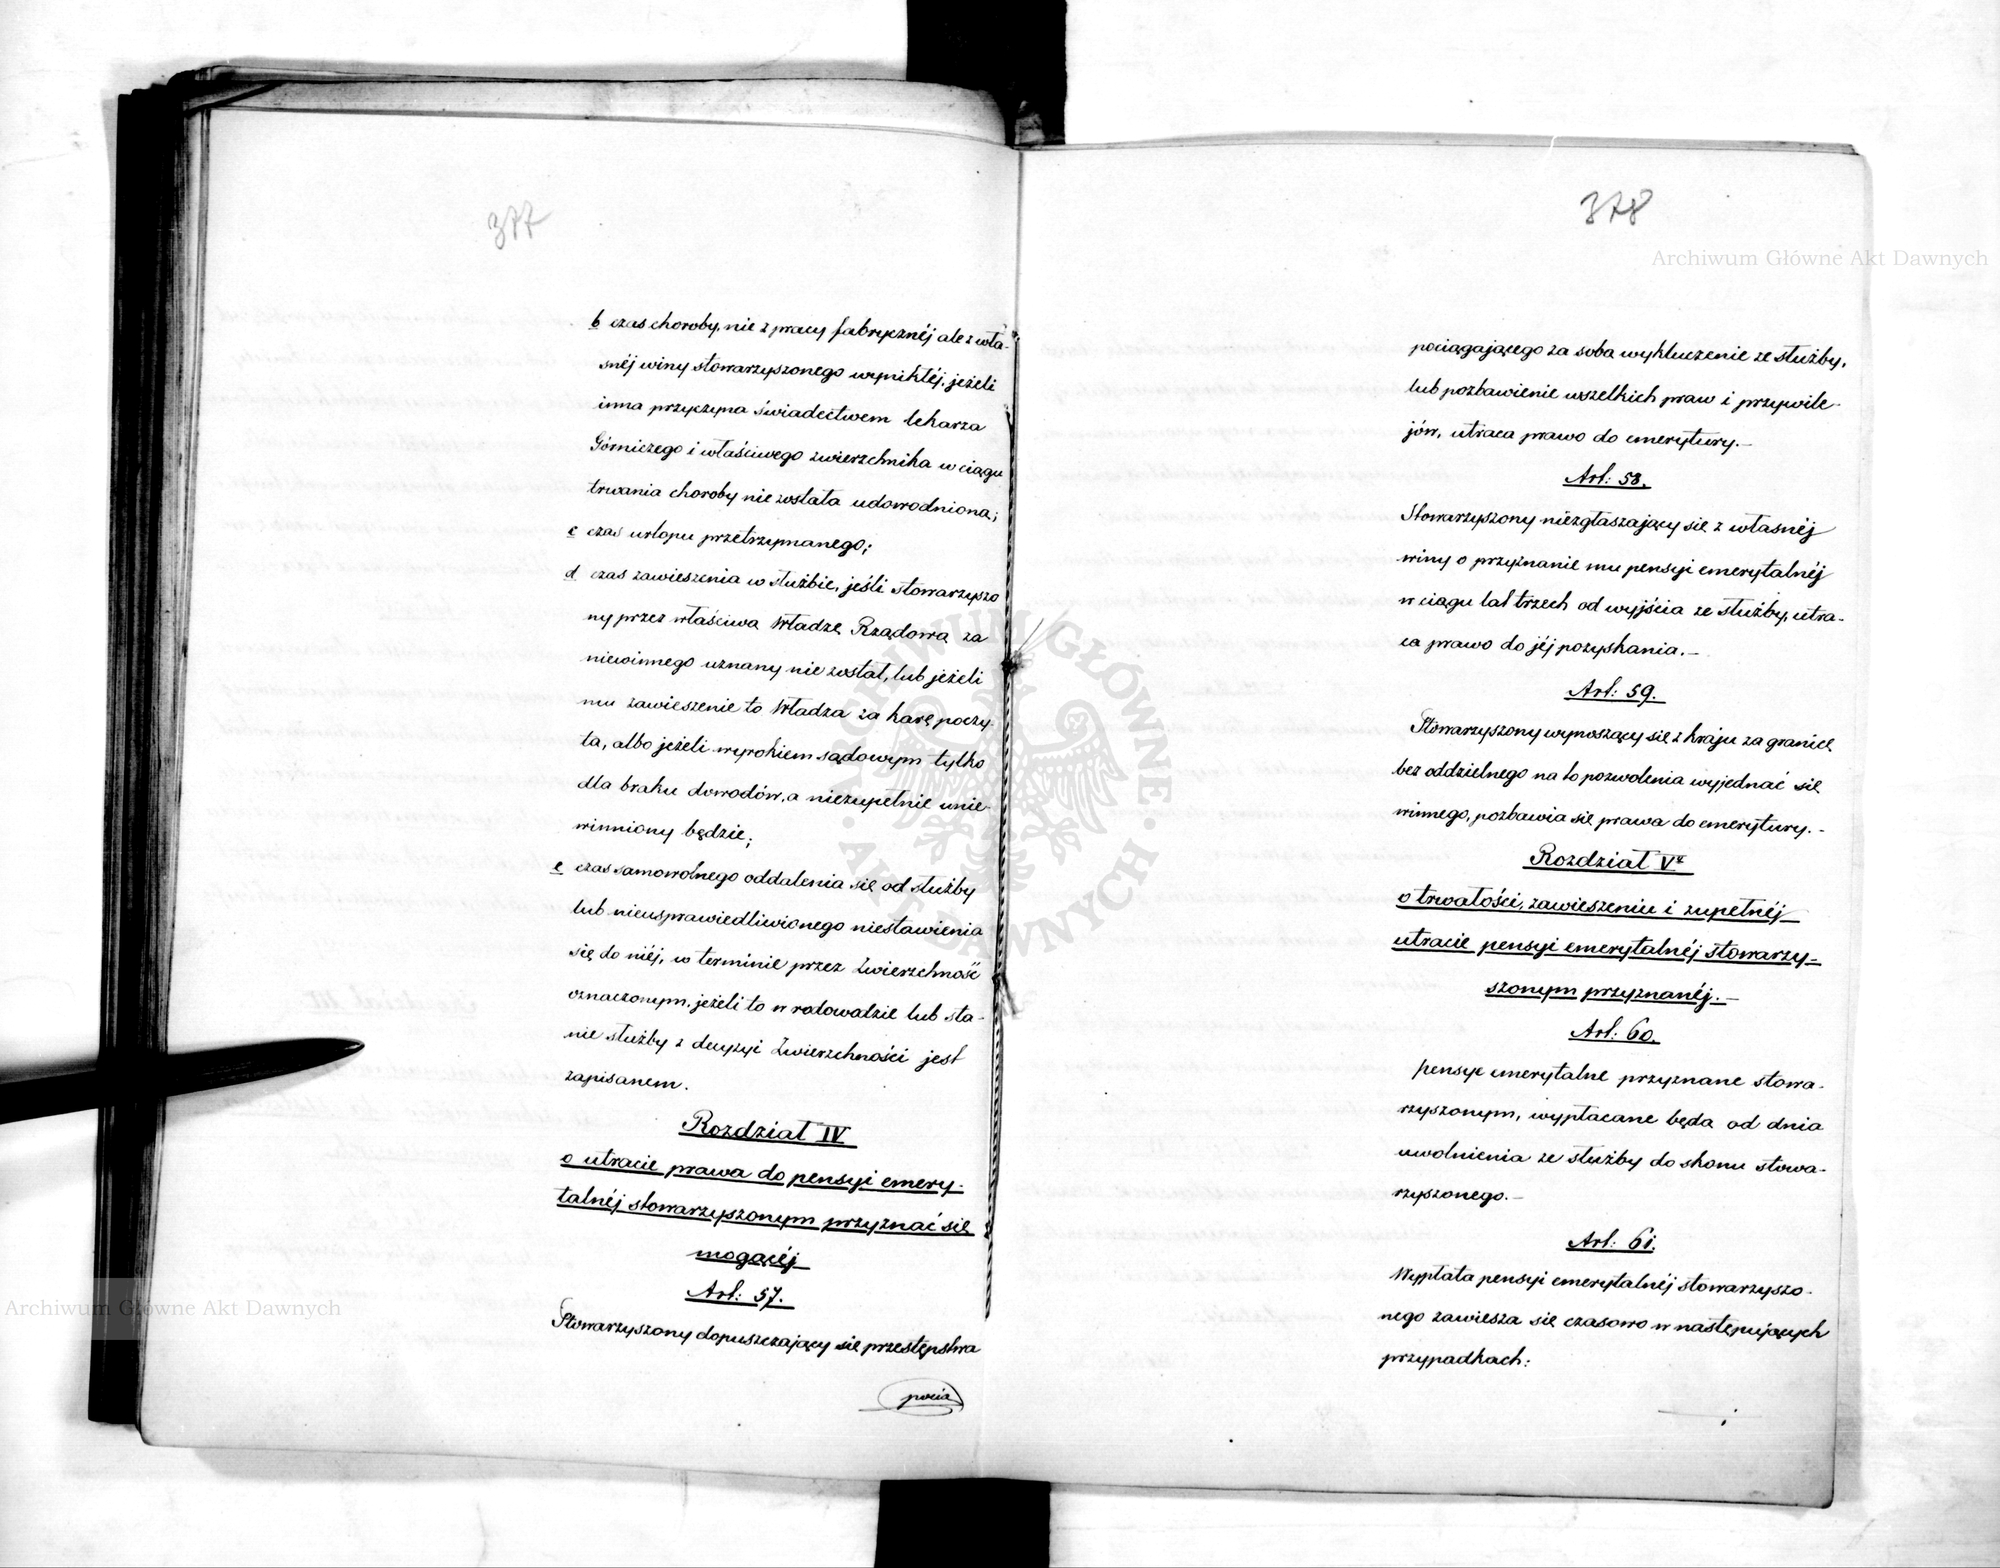 377
b czas choroby, nie z pracy fabrycznéj ale z wła-
snéj winy stowarzyszonego wynikłéj, jeżeli
inna przyczyna świadectwem lekarza
Górniczego i właściwego zwierzchnika w ciągu
trwania choroby nie została udowodniona;
c czas urlopu przetrzymanego;
d czas zawieszenia w służbie, jeśli stowarzyszo
ny przez właściwą Władzę Rządową za
niewinnego uznany nie został, lub jeżeli
mu zawieszenie to Władza za karę poczy-
ta, albo jeżeli wyrokiem sądowym tylko
dla braku dowodów, a niezupełnie unie-
winniony będzie;
e czas samowolnego oddalenia się od służby
lub nieusprawiedliwionego niestawienia
się do niéj, w terminie przez Zwierzchność
oznaczonym, jeżeli to w rodowodzie lub sta-
nie służby z decyzyi Zwierzchności jest
zapisanem.
Rozdział IV
o utracie prawa do pensyi emery-
talnéj stowarzyszonym przyznać się
mogącéj
Art: 57.
Stowarzyszony dopuszczający się przestępstwa
pocią
378
pociągającego za sobą wykluczenie ze służby,
lub pozbawienie wszelkich praw i przywile-
jów, utraca prawo do emerytury.-
Art: 58.
Stowarzyszony niezgłaszający się z własnéj
winy o przyznanie mu pensyi emerytalnéj
w ciągu lat trzech od wyjścia ze służby, utra-
ca prawo do jéj pozyskania.-
Art: 59.
Stowarzyszony wynoszący się z kraju za granicę
bez oddzielnego na to pozwolenia wyjednać się
winnego, pozbawia się prawa do emerytury.-
Rozdział V
o trwałości, zawieszeniu i zupełnéj
utracie pensyi emerytalnéj stowarzy-
szonym przyznanéj.-
Art: 60.
pensye emerytalne przyznane stowa-
rzyszonym, wypłacane będą od dnia
uwolnienia ze służby do skonu stowa-
rzyszonego.-
Art: 61.
Wypłata pensyi emerytalnéj stowarzyszo-
nego zawiesza się czasowo w następujących
przypadkach:
Archiwum Główne Akt Dawnych
Archiwum Główne Akt Dawnych
ARCHIWUM GŁÓWNE · AKT DAWNYCH ·